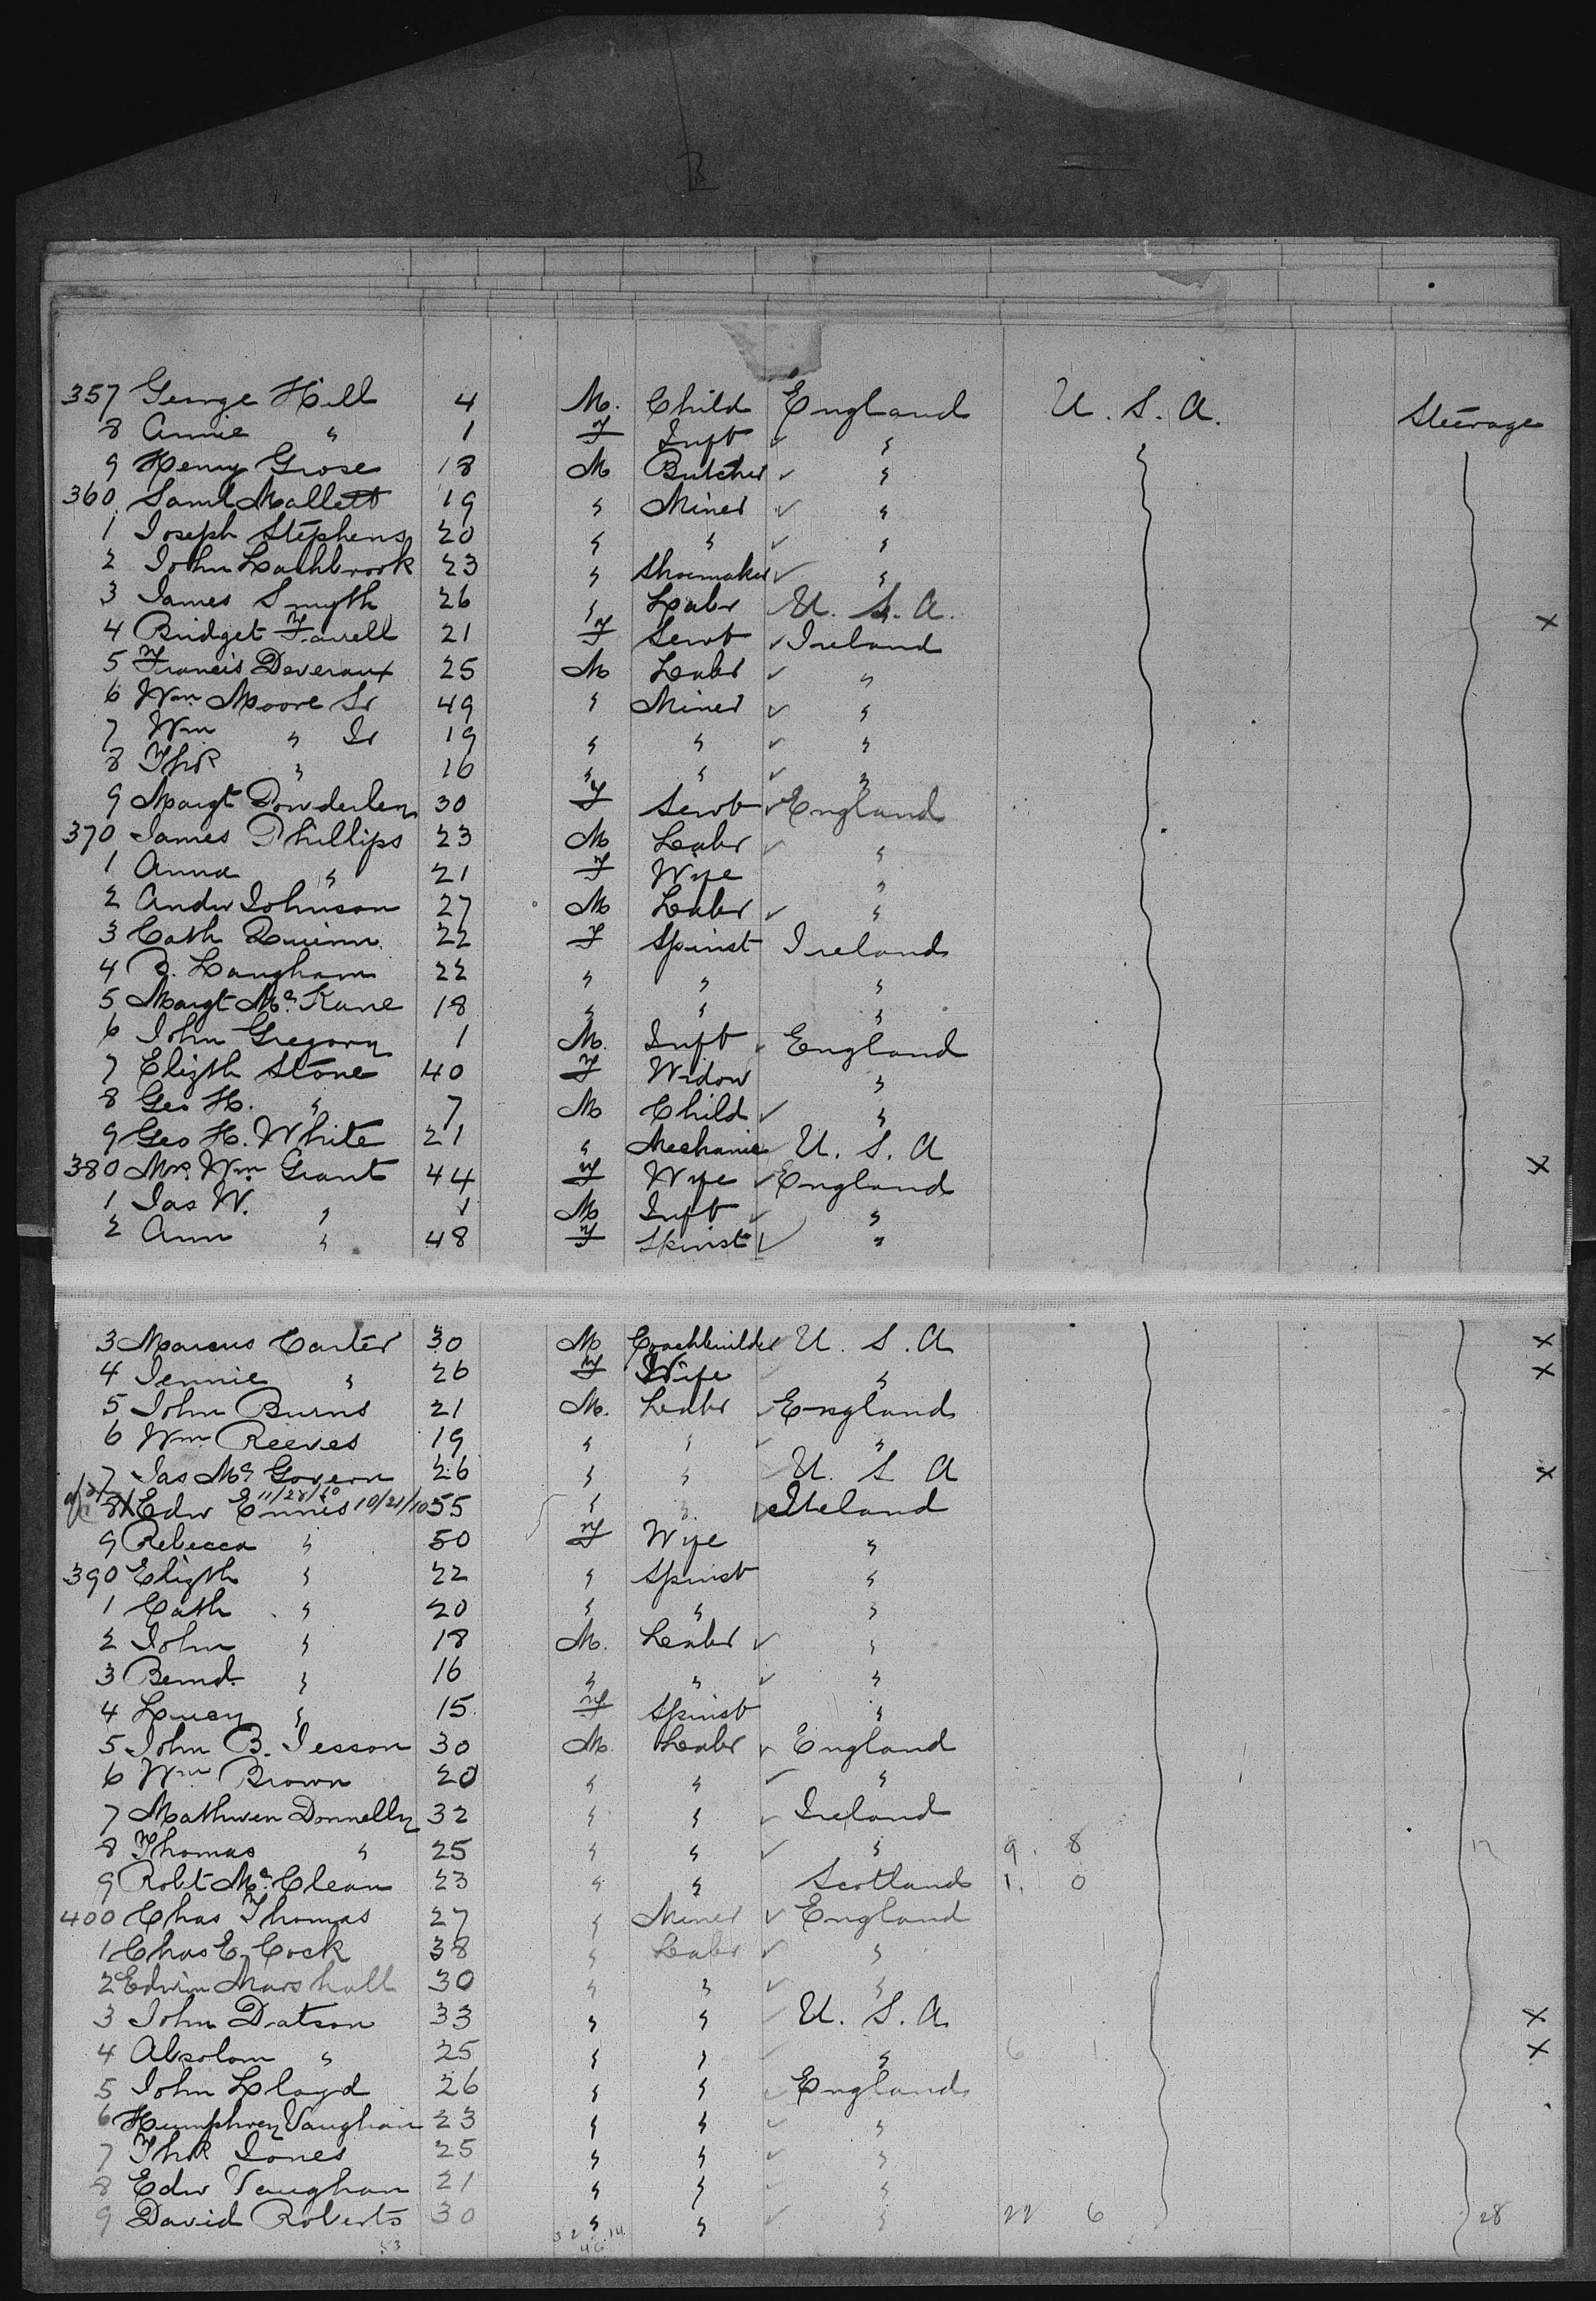 357 George Hill 4 M. Child England U. S. A. Steerage
8 Annie " 1 F Inft "
9 Henry Grose 18 M Butcher "
360 Saml Mallett 19 " Miner "
1 Joseph Stephens 20 " " "
2 John Lathbrook 23 " Shoemaker "
3 James Smyth 26 " Labr U. S. A. X
4 Bridget Farrell 21 F Servt Ireland
5 Francis Deveraux 25 M Labr "
6 Wm Moore Sr 49 " Miner "
7 Wm " Jr 19 " " "
8 Ths " 16 " " "
9 Margt 30 F Servt England
370 James Phillips 23 M Labr "
1 Anna " 21 F Wife "
2 Andw Johnson 27 M Labr "
3 Cath Quinn 22 F Spinst Ireland
4 B. Langham 22 " " "
5 Margt Mc Kane 18 " " "
6 John Gregory 1 M. Inft England
7 Elizth Stone 40 F Widow "
8 Geo H. " 7 M Child "
9 Geo H. White 21 " Mechanic U. S. A X
380 Mrs Wm Grant 44 F Wife England
1 Jas W. " 1 M Inft "
2 Ann " 48 F Spinst "
3 Marcus Carter 30 M Coachbuilder U. S. A X
4 Jennie " 26 F Wife " X
5 John Burns 21 M. Labr England
6 Wm Reeves 19 " " "
7 Jas Mc Govern 26 " " U. S A X
8 X Edw Ennis 11/28/60 10/21/10 55 " " Ireland
9 Rebecca " 50 F Wife "
390 Elizth " 22 " Spinst "
1 Cath " 20 " " "
2 John " 18 M. Labr "
3 Bernd. " 16 " " "
4 Lucy " 15 F Spinst "
5 John B. Jesson 30 M. Labr England
6 Wm Brown 20 " " "
7 Mathwen Donnelly 32 " " Ireland
8 Thomas " 25 " " " 9. 8 12
9 Robt Mc Clean 23 " " Scotland 1. 0
400 Chas Thomas 27 " Miner England
1 Chas E. Cock 38 " Labr "
2 Edwin Marshall 30 " " "
3 John Datson 33 " " U. S. A. X
4 Absolom " 25 " " " 6 1 X
5 John Lloyd 26 " " England
6 Humphrey Vaughan 23 " " "
7 Ths Jones 25 " " "
8 Edw Vaughan 21 " " "
9 David Roberts 30 " " " 22 6 28
53 32 14
46